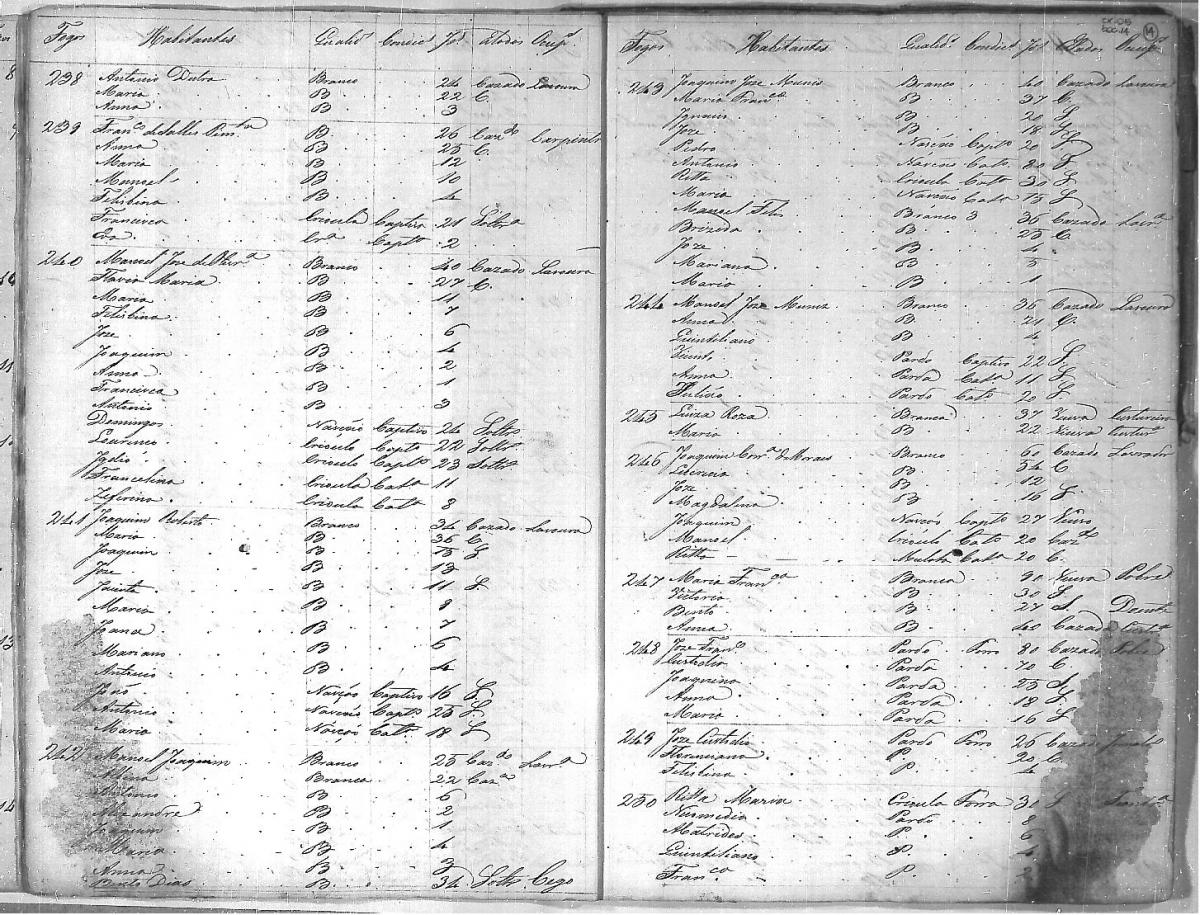 Fogos Habitantes Qualid.^e Condic.^l Id.^s Estados Ocup.^m
238 Antonio Dutra Branco 24 Cazado Lavoura
Maria B 22 C.
Anna B 3
239 Fran.^co de Salles B 26 Caz.^do Carpintr.^o
Anna B 25 C.
Maria B 12
Manoel B 10
Felisbina B 4
Francisca Crioula Captiva 21 Soltr.^a
Eva Cr.^a Capt.^a 2
240 Manoel Joze de Olivr.^a Branco 40 Cazado Lavoura
Flavia Maria B 27 C.
Maria B 11
Felisbina B 7
Joze B 6
Joaquim B 4
Anna B 2
Francisca B 1
Antonio B 3
Domingos Naração Captivo 24 Soltr.^o
Lourenço Crioulo Capt.^o 22 Soltr.^o
Crioulo Capt.^o 23 Soltr.^o
Francelina Crioula Cat.^a 11
Zeferina Crioula Cat.^a 8
241 Joaquim Roberto Branco 34 Cazado Lavoura
Maria B 36 C.
Joaquim B 15 S
Joze B 13
Jacinta B 11 S.
Maria B 8
Joana B 7
Mariano B 6
Antonio B 4
João Nação Captivo 16 S.
Antonio Nação Capt.^o 25 S.
Maria Nação Cat.^a 18 S
242 Manoel Joaquim Branco 25 Caz.^do Lavr.^a
Branca 22 Caz.^a
Antonio B 6
Alexandre B 2
Joaquim B 1
Maria B 4
Anna B 3
Bento Dias B 34 Soltr.^o Cego
14
Fogos Habitantes Qualid.^e Condic.^l Id.^s Estados Ocup.^m
243 Joaquim Joze Munis Branco 40 Cazado Lavoura
Maria Fran.^ca B 37 C.
Ignacio B 20 S
Joze B 18 S
Pedro Nação Capt.^o 20 S
Antonio Nação Cat.^o 80 S
Ritta Crioula Cat.^a 30 S
Maria Nação Cat.^a 15 S
Manoel Felis Branco 36 Cazado Lavr.^a
Brizida B 25 C.
Joze B 4
Mariana B 5
Maria B 1
244 Manoel Joze Muniz Branco 36 Cazado Lavoura
Anna B 21 C.
Quintiliano B 4
Vicente Pardo Captivo 22 S
Anna Parda Cat.^a 11 S
Pardo Cat.^o 20 S
245 Luiza Roza Branca 37 Viuva Costureira
Maria B 22 Viuva Costur.^a
246 Joaquim Corr.^a de Moraes Branco 60 Cazado Lavrador
Lucrecia B 54 C
Joze B 12
Magdalena B 16 S.
Joaquim Nação Capt.^o 27 Viuvo
Manoel Crioulo Cat.^o 20 Caz.^do
Ritta Mulata Cat.^a 20 C.
247 Maria Fran.^ca Branca 90 Viuva Pobre
Victoria B 30 S
Bento B 27 S. Doente
Anna B 40 Cazada Cost.^a
248 Joze Fran.^co Pardo Forro 80 Cazado
Custodia Parda 70 C
Joaquina Parda 25 S
Anna Parda 18 S
Maria Parda 16 S
249 Joze Custodio Pardo Forro 26 Cazado
Hermiana P. 20 C.
Felisbina P. 4
250 Ritta Maria Crioula Forra 30 S
Pardo 8
P. 6
Quintiliano P.
Fran.^co P.